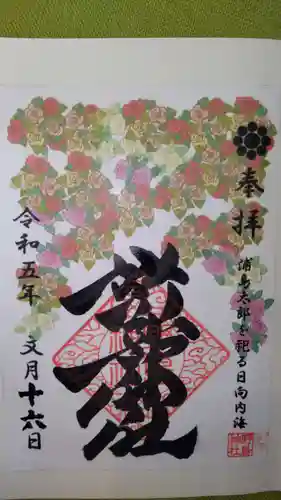 奉拝
浦島太郎を祀る日向内海
野島神社
令和五年
文月十六日